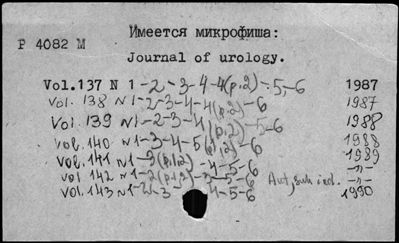 Имеется микрофиша:
P 4082 M
Journal of urology.
Vol.137 N 1-2-3-4-4(p.2)-5-6 1987
Vol. 138 N1-2-3-4-4(p.2)-6 1987
Vol. 139 N1-2-3-4(p.2)-5-6 1988
Vol. 140 N1-3-4-5(p.1,2)-6 1988
Vol. 141 N1-2(p.1,2)-4-5-6 1989
Vol 142 N1-2(p.1,2)-3-5-6 Aut, sub ind. -"-
Vol. 143 N1-2-3 4-5-6 1990